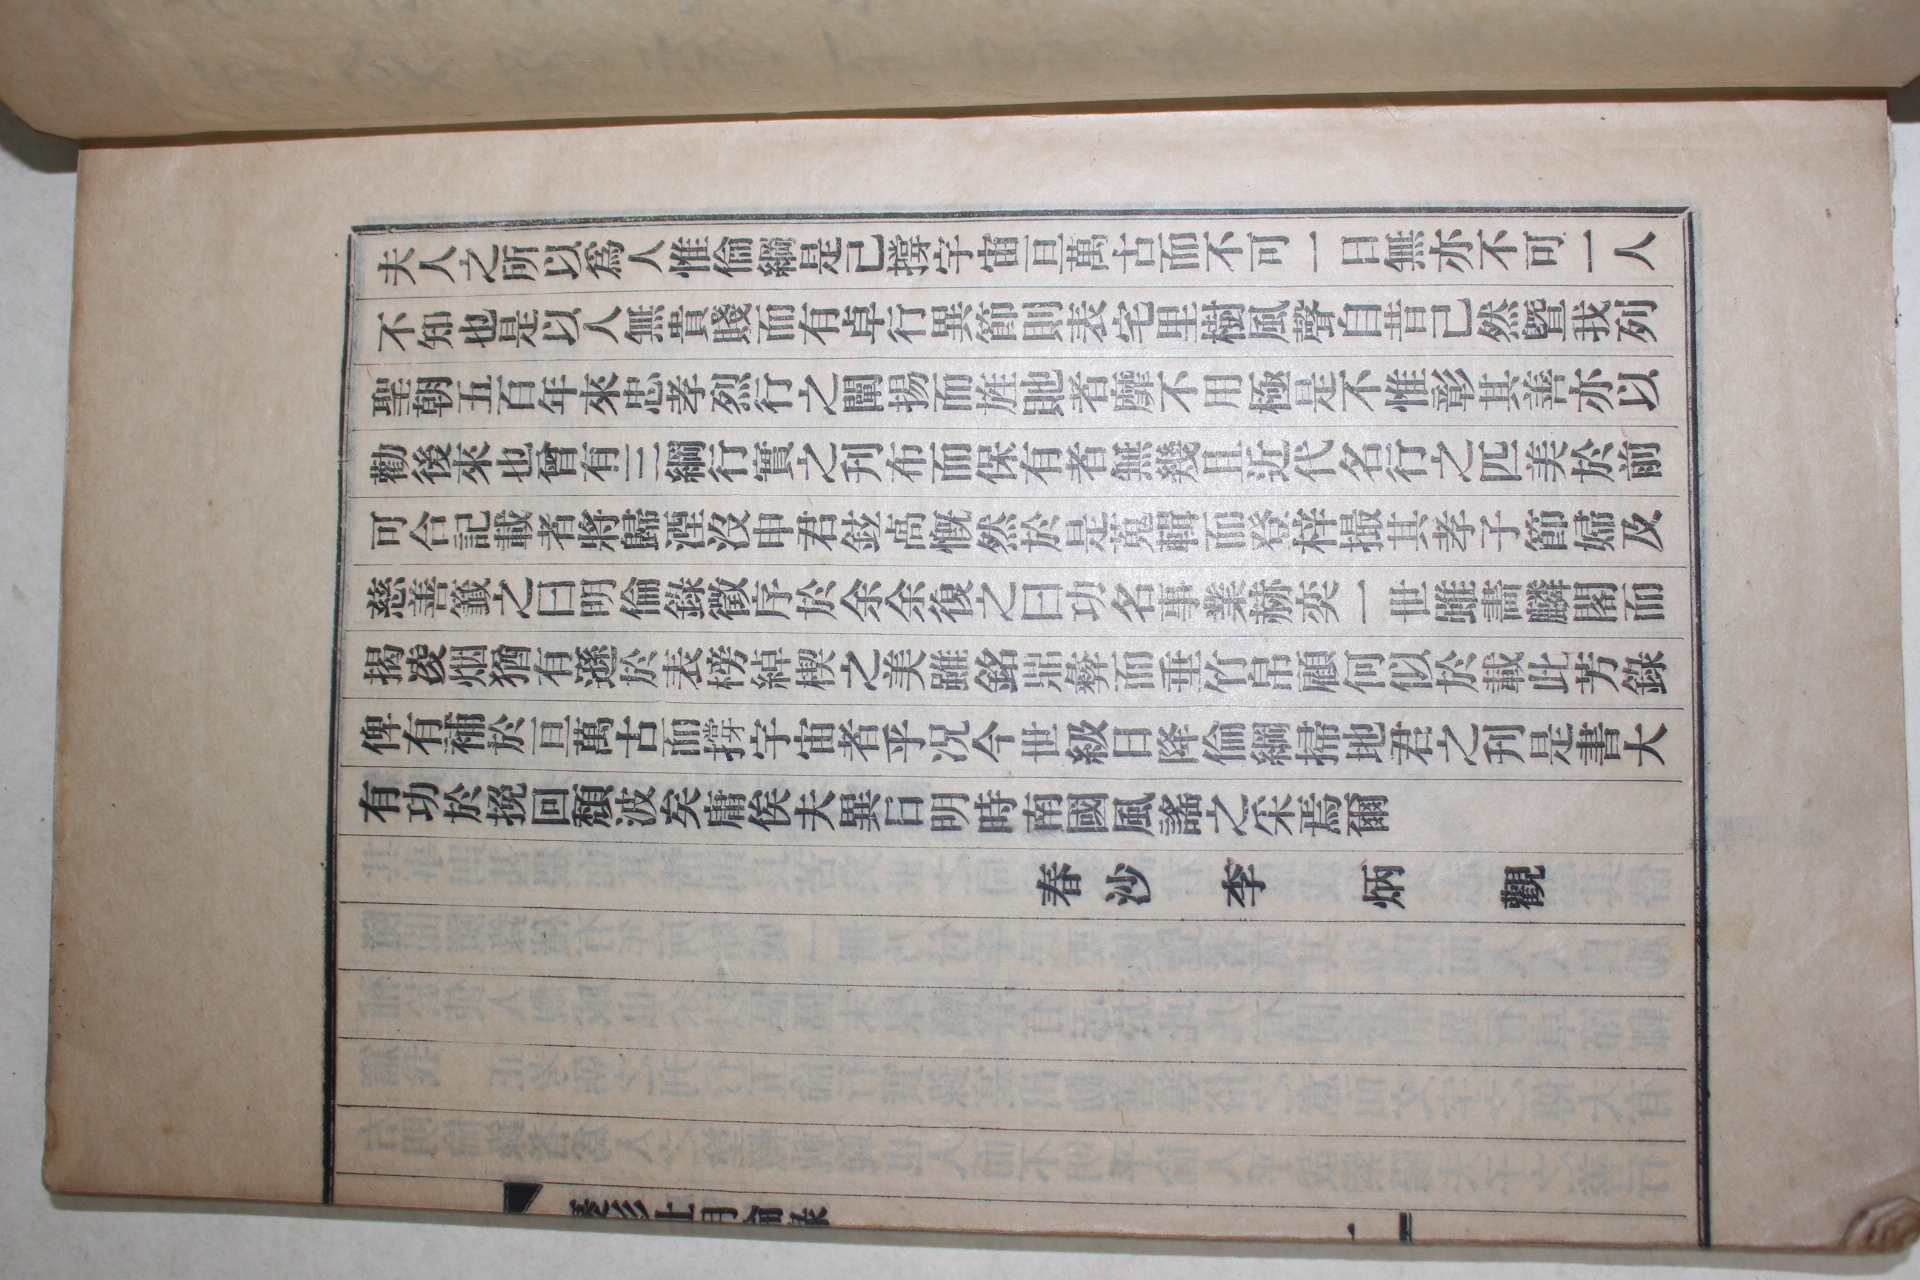 夫人之所以爲人惟倫綱是已撐宇宙亘萬古而不可一日無亦不可一人
不知也是以人無貴賤而有卓行異節則表宅里樹風聲自昔已然曁我列
聖朝五百年來忠孝烈行之闡揚而旌貤者靡不用極是不惟彰其善亦以
勸後來也曾有三綱行實之刊布而保有者無幾且近代名行之匹美於前
可合記載者將歸湮沒申君鉉卨慨然於是蒐輯而登梓撮其孝子節婦及
慈善籤之曰明倫錄徵序於余余復之曰功名事業赫奕一世雖畵麟閣而
揭凌烟猶有遜於表榜綽楔之美雖銘鼎彛而垂竹帛顧何似於載此芳錄
俾有補於亘萬古而撐宇宙者乎况今世級日降倫綱掃地君之刊是書大
有功於挽回頹波矣庸俟夫異日明時南國風謠之采焉爾
春沙李炳觀
褒彰社明倫錄
一